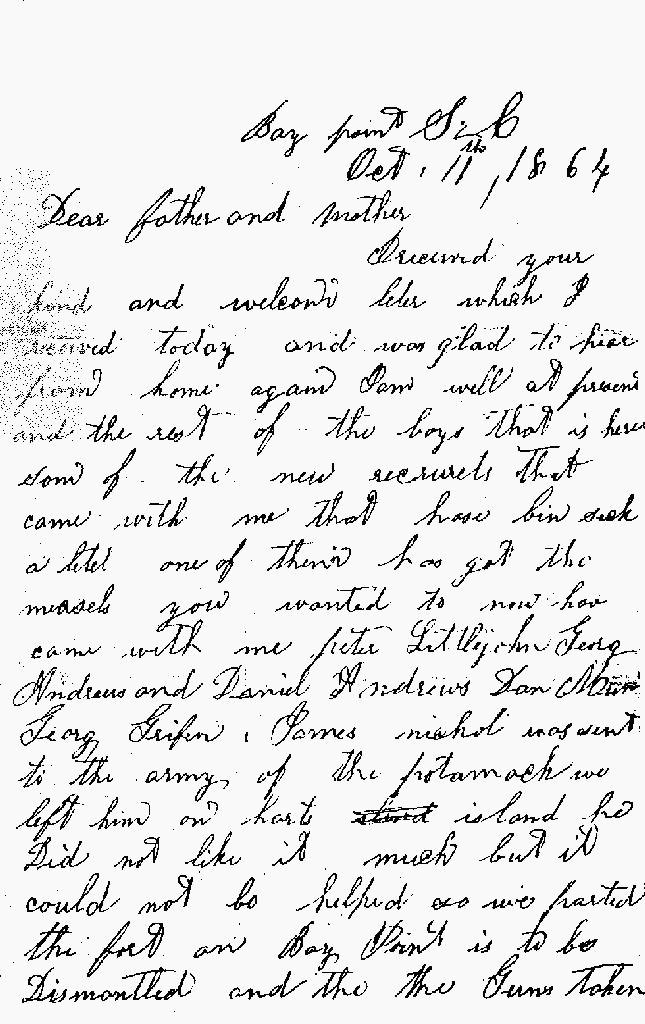 Bay point S. C
Oct. 11th, 1864
Dear father and mother
I received your
kind and welcom leter which I
received today and was glad to hear
from home again I am well at presen
and the rest of the boys that is here
som of the new recruets that
came with me that have bin sick
a litel one of them has got the
measels you wanted to now hoo
came with me peter Littlejohn Georg
Andrews and Daniel Andrews Dan
Georg Grifen, James nichol was sent
to the army of the potamock we
left him on hart island he
Did not like it much but it
could not be helped so we parted
the fort on Bay Point is to be
Dismontled and the the Guns taken